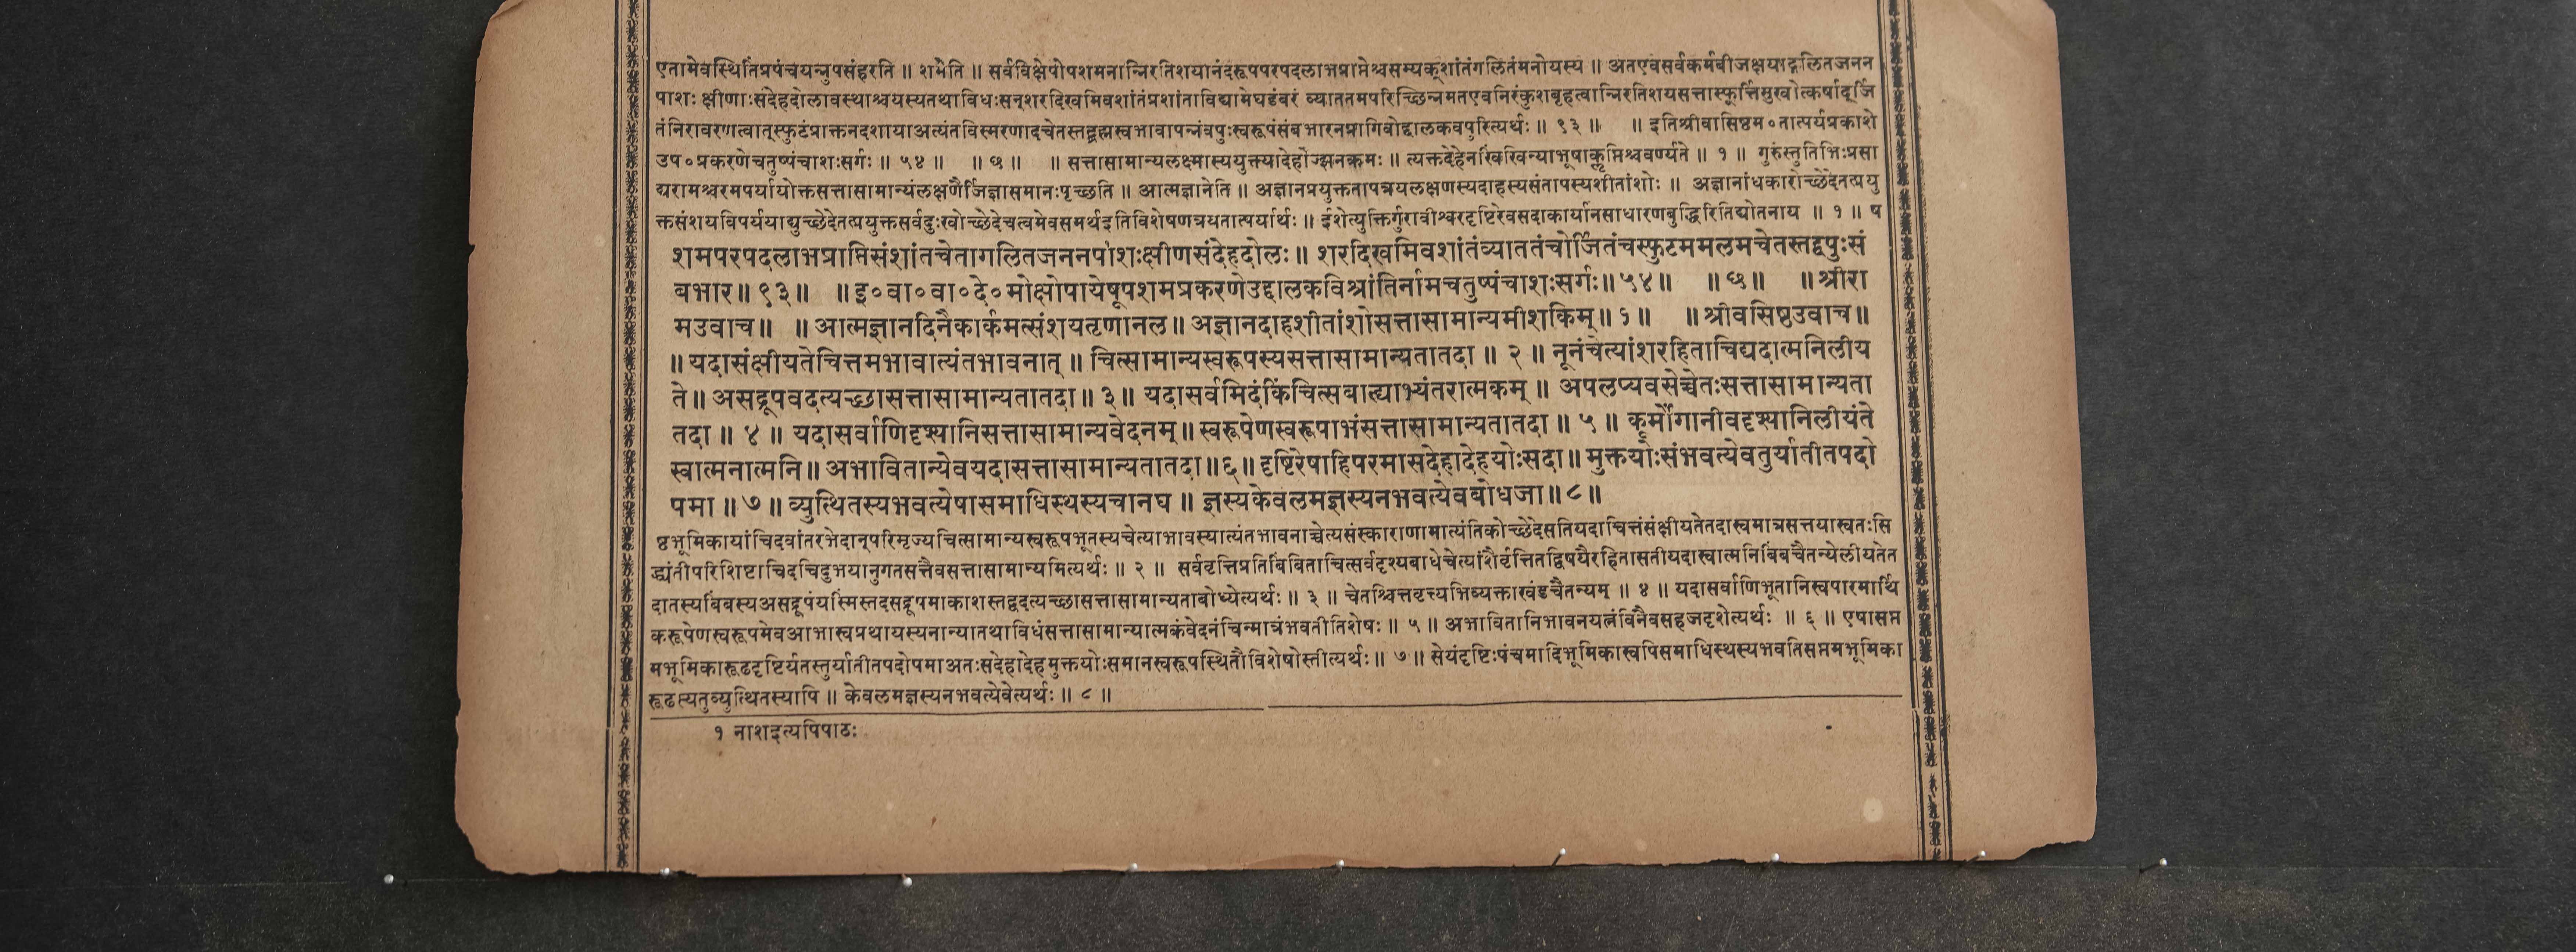 एतामेवस्थितिंप्रपंचयन्नुपसंहरति ॥ शमेति ॥ सर्वविक्षेपोपशमनान्निरतिशयानंदरूपपरपदलाभप्राप्तेश्चसम्यक्शांतंगलितंमनोयस्य ॥ अतएवसर्वकर्मबीजक्षयाद्गलितजनन
पाशः क्षीणाःसंदेहदोलावस्थाश्चयस्यतथाविधःसन्शरदिखमिवशांतंप्रशांताविद्यामेघडंबरं व्याततमपरिच्छिन्नमतएवनिरंकुशबृहत्वान्निरतिशयसत्तास्फूर्त्तिसुखोत्कर्षादूर्जि
तंनिरावरणत्वात्स्फुटंप्राक्तनदशायाअत्यंतविस्मरणादचेतस्तद्ब्रह्मस्वभावापन्नंवपुःस्वरूपंसंबभारनप्रागिवोद्दालकवपुरित्यर्थः ॥ ९३ ॥ ॥ इतिश्रीवासिष्ठम॰तात्पर्यप्रकाशे
उप॰प्रकरणेचतुष्पंचाशःसर्गः ॥ ५४ ॥ ॥ छ ॥ ॥ सत्तासामान्यलक्ष्मास्ययुक्त्यादेहोज्झनक्रमः ॥ त्यक्तदेहेनखिंखिन्याभूषाकॢप्तिश्चवर्ण्यते ॥ १ ॥ गुरुंस्तुतिभिःप्रसा
द्यरामश्चरमपर्यायोक्तसत्तासामान्यंलक्षणैर्जिज्ञासमानःपृच्छति ॥ आत्मज्ञानेति ॥ अज्ञानप्रयुक्ततापत्रयलक्षणस्यदाहस्यसंतापस्यशीतांशोः ॥ अज्ञानांधकारोच्छेदेतत्प्रयु
क्तसंशयविपर्ययाद्युच्छेदेतत्प्रयुक्तसर्वदुःखोच्छेदेचत्वमेवसमर्थइतिविशेषणत्रयतात्पर्यार्थः ॥ ईशेत्युक्तिर्गुरावीश्वरदृष्टिरेवसदाकार्यानसाधारणबुद्धिरितिद्योतनाय ॥ १ ॥ ष
शमपरपदलाभप्राप्तिसंशांतचेतागलितजननपाशःक्षीणसंदेहदोलः ॥ शरदिखमिवशांतंव्याततंचोर्जितंचस्फुटममलमचेतस्तद्वपुःसं
बभार ॥ ९३ ॥ ॥ इ॰वा॰वा॰दे॰मोक्षोपायेषूपशमप्रकरणेउद्दालकविश्रांतिर्नामचतुष्पंचाशःसर्गः ॥ ५४ ॥ ॥ छ ॥ ॥ श्रीरा
मउवाच ॥ ॥ आत्मज्ञानदिनैकार्कमत्संशयतृणानल ॥ अज्ञानदाहशीतांशोसत्तासामान्यमीशकिम् ॥ १ ॥ ॥ श्रीवसिष्ठउवाच ॥
॥ यदासंक्षीयतेचित्तमभावात्यंतभावनात् ॥ चित्सामान्यस्वरूपस्यसत्तासामान्यतातदा ॥ २ ॥ नूनंचेत्यांशरहिताचिद्यदात्मनिलीय
ते ॥ असद्रूपवदत्यच्छासत्तासामान्यतातदा ॥ ३ ॥ यदासर्वमिदंकिंचित्सबाह्याभ्यंतरात्मकम् ॥ अपलप्यवसेच्चेतःसत्तासामान्यता
तदा ॥ ४ ॥ यदासर्वाणिदृश्यानिसत्तासामान्यवेदनम् ॥ स्वरूपेणस्वरूपाभंसत्तासामान्यतातदा ॥ ५ ॥ कूर्मोंगानीवदृश्यानिलीयंते
स्वात्मनात्मनि ॥ अभावितान्येवयदासत्तासामान्यतातदा ॥ ६ ॥ दृष्टिरेषाहिपरमासदेहादेहयोःसदा ॥ मुक्तयोःसंभवत्येवतुर्यातीतपदो
पमा ॥ ७ ॥ व्युत्थितस्यभवत्येषासमाधिस्थस्यचानघ ॥ ज्ञस्यकेवलमज्ञस्यनभवत्येवबोधजा ॥ ८ ॥
ष्ठभूमिकायांचिदवांतरभेदान्परिमृज्यचित्सामान्यस्वरूपभूतस्यचेत्याभावस्यात्यंतभावनाच्चेत्यसंस्काराणामात्यंतिकोच्छेदेसतियदाचित्तंसंक्षीयतेतदास्वमात्रसत्तयास्वतःसि
द्ध्यंतीपरिशिष्टाचिदचिदुभयानुगतसत्तैवसत्तासामान्यमित्यर्थः ॥ २ ॥ सर्ववृत्तिप्रतिबिंबिताचित्सर्वदृश्यबाधेचेत्यांशैर्वृत्तितद्विषयैरहितासतीयदास्वात्मनिबिंबचैतन्येलीयतेत
दातस्यबिंबस्यअसद्रूपंयस्मिंस्तदसद्रूपमाकाशस्तद्वदत्यच्छासत्तासामान्यताबोध्येत्यर्थः ॥ ३ ॥ चेतश्चित्तवृत्त्यभिव्यक्ताखंडचैतन्यम् ॥ ४ ॥ यदासर्वाणिभूतानिस्वपारमार्थि
करूपेणस्वरूपमेवआभास्वप्रथायस्यनान्यातथाविधंसत्तासामान्यात्मकंवेदनंचिन्मात्रंभवतीतिशेषः ॥ ५ ॥ अभावितानिभावनयत्नंविनैवसहजदृशेत्यर्थः ॥ ६ ॥ एषासप्त
मभूमिकारूढदृष्टिर्यतस्तुर्यातीतपदोपमाअतःसदेहादेहमुक्तयोःसमानस्वरूपस्थितौविशेषोस्तीत्यर्थः ॥ ७ ॥ सेयंदृष्टिःपंचमादिभूमिकास्वपिसमाधिस्थस्यभवतिसप्तमभूमिका
रूढस्यतुव्युत्थितस्यापि ॥ केवलमज्ञस्यनभवत्येवेत्यर्थः ॥ ८ ॥
१ नाशइत्यपिपाठः